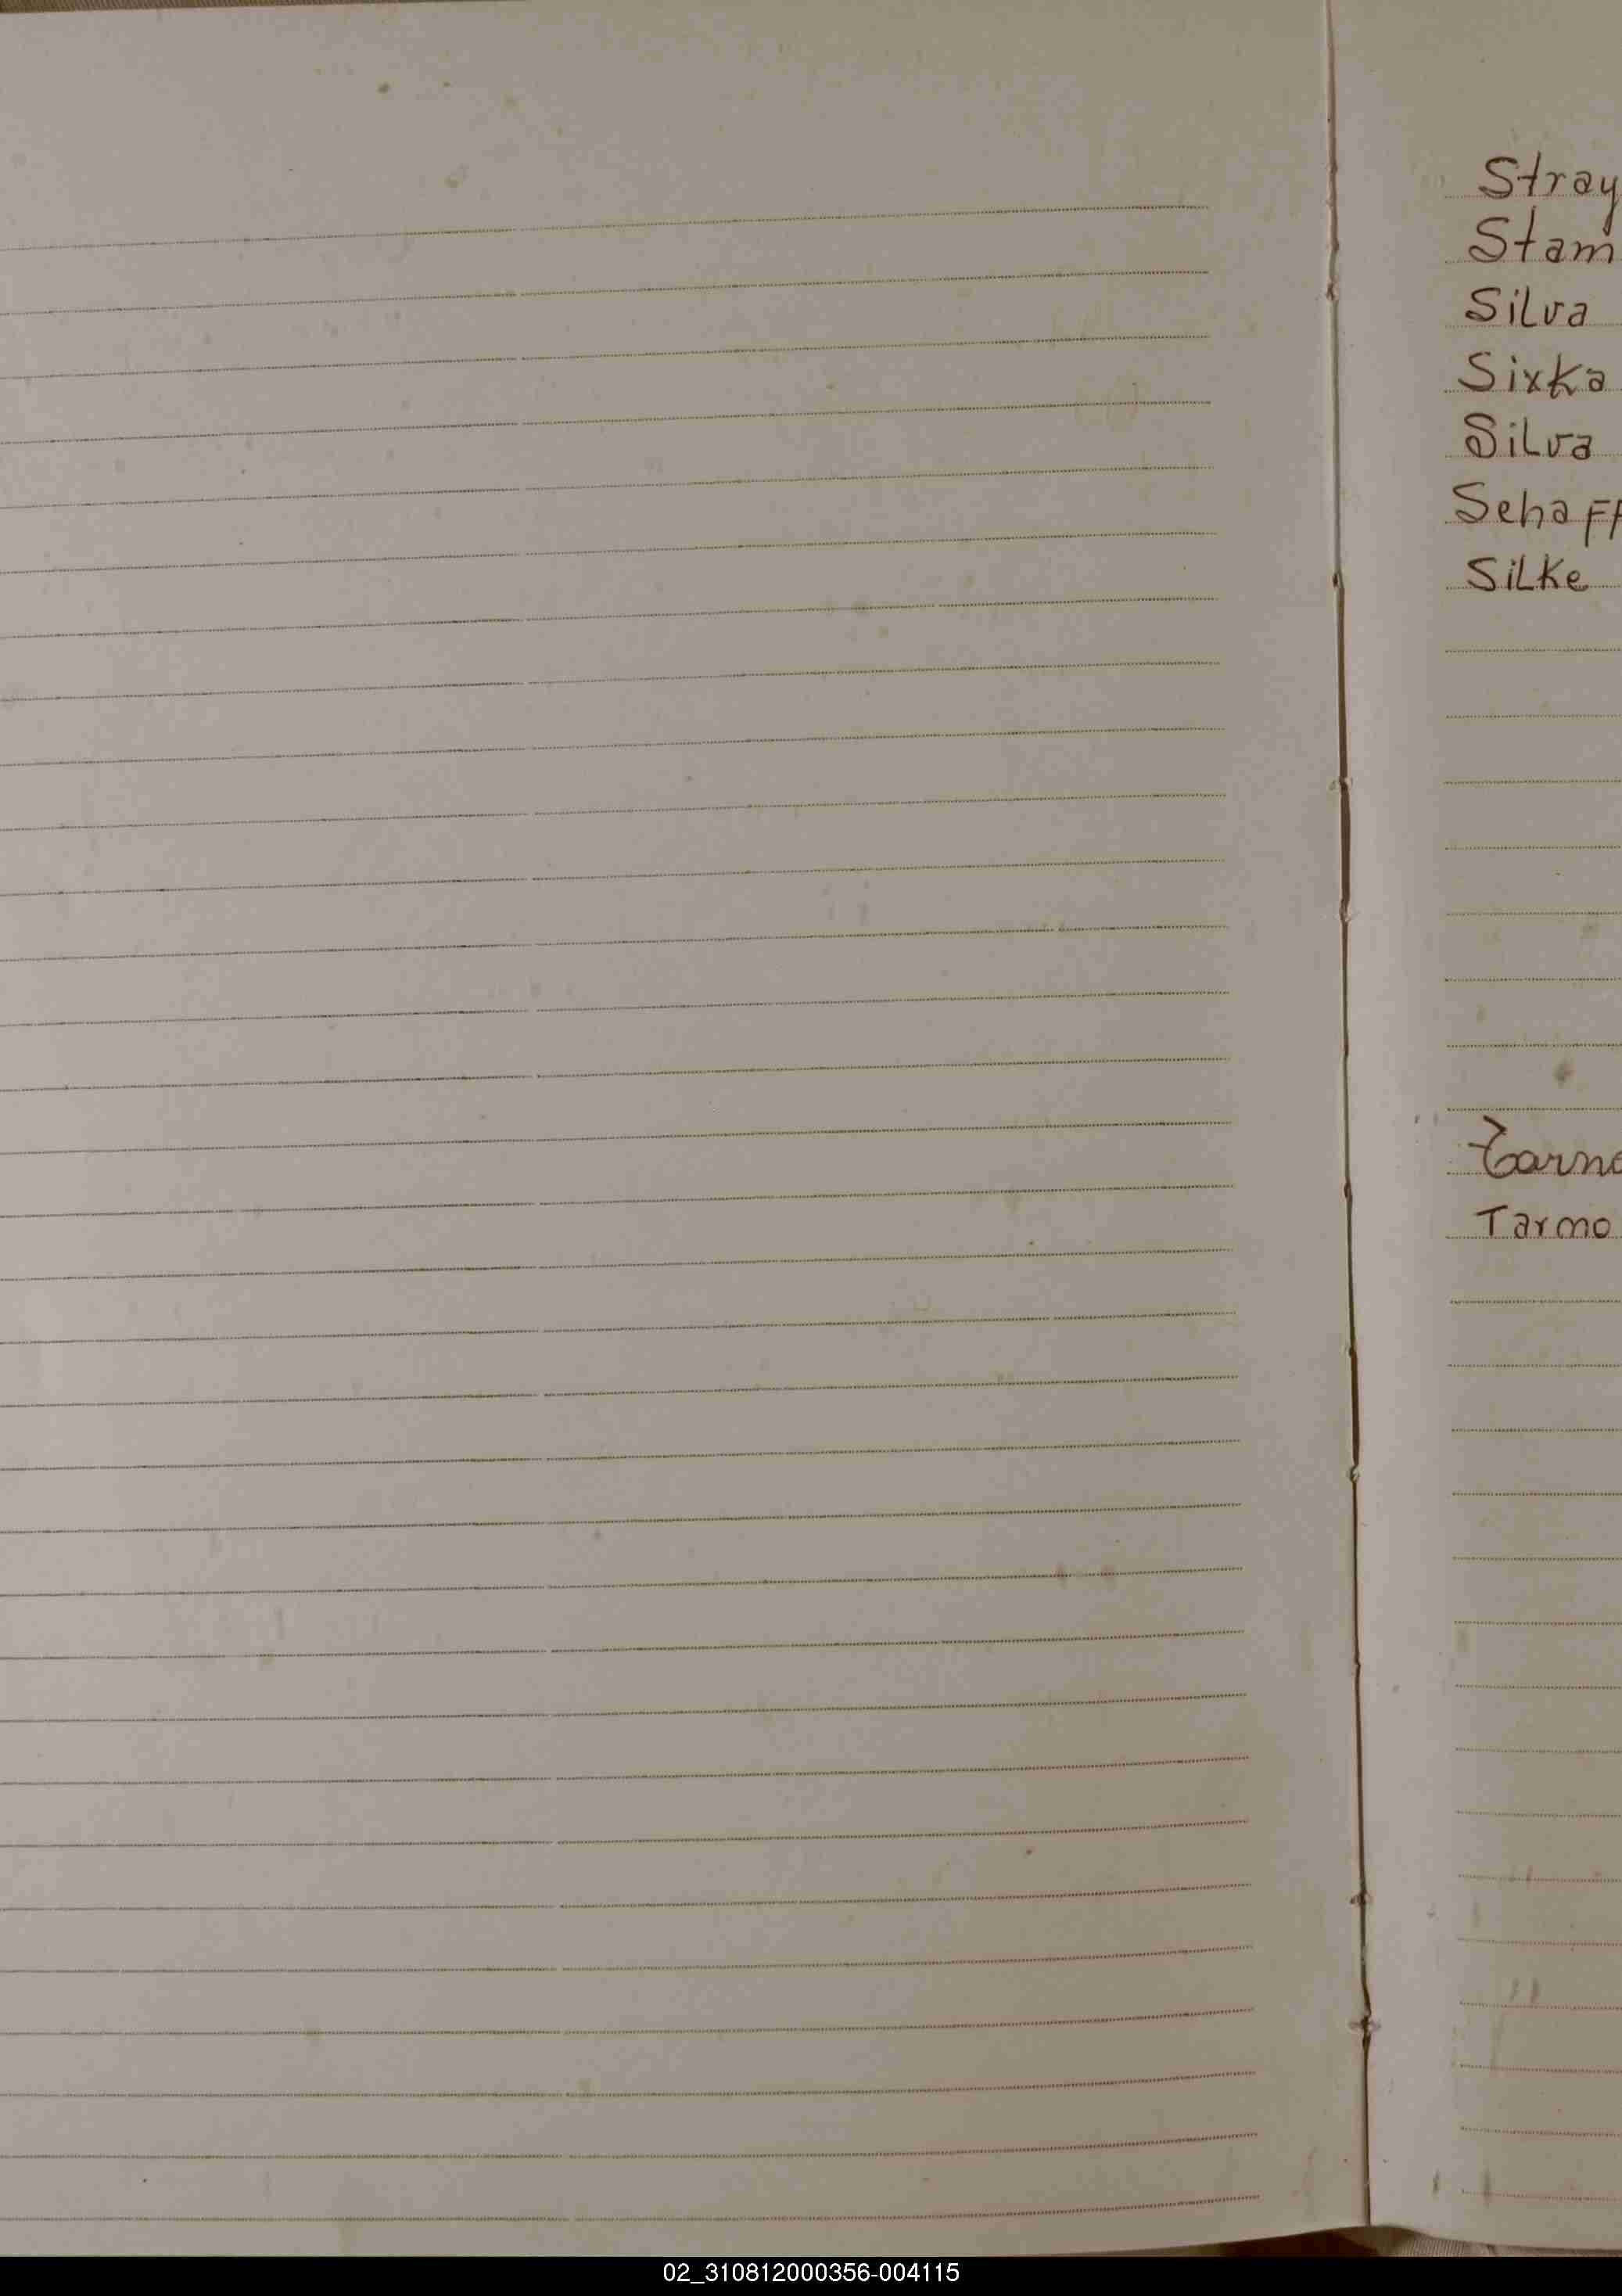 Stray
Stam
Silva
Sixka
Silva
Schaff
Silke
Tarmo
02_310812000356-004115